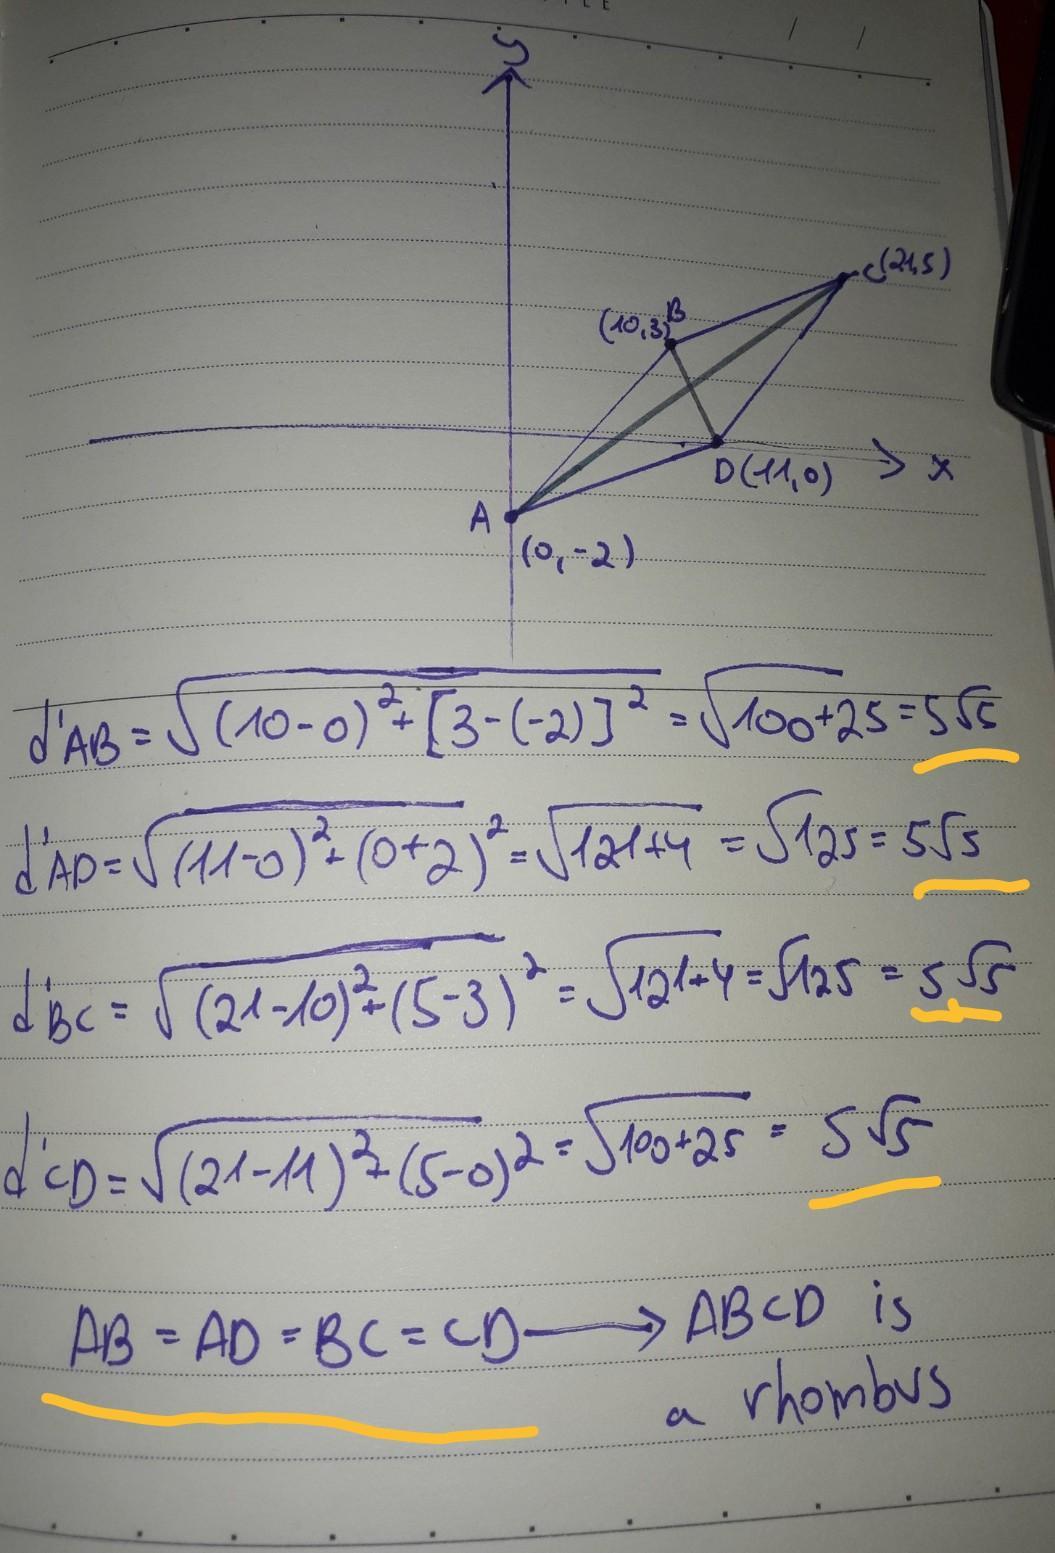 y
C(21,5)
B
(10,3)
x
D(11,0)
A
(0,-2)
d'AB = √(10-0)² + [3-(-2)]² = √100+25 = 5√5
d'AD = √(11-0)² + (0+2)² = √121+4 = √125 = 5√5
d'BC = √(21-10)² + (5-3)² = √121+4 = √125 = 5√5
d'CD = √(21-11)² + (5-0)² = √100+25 = 5√5
AB = AD = BC = CD → ABCD is
a rhombus